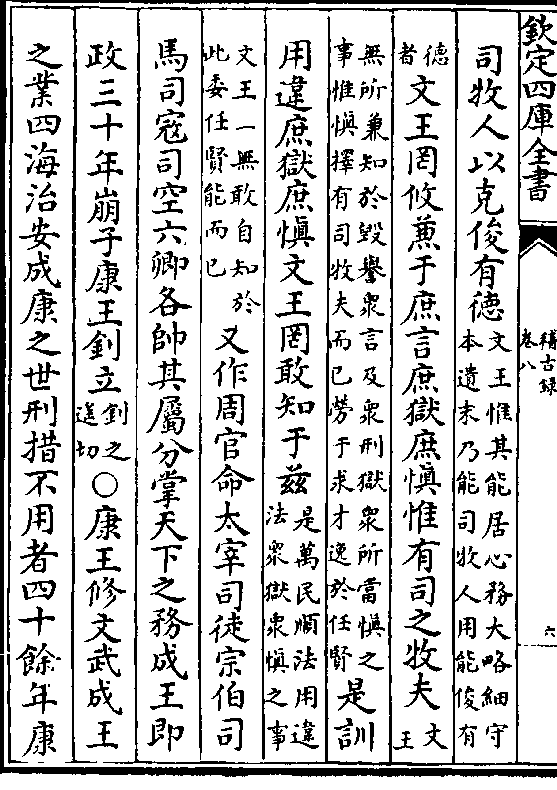 欽定四庫全書
稽古錄
卷八
六
司牧人以克俊有德文王惟其能居心務大略細守
本遺末乃能司牧人用能俊有
德
者文王罔攸兼于庶言庶獄庶慎惟有司之牧夫文
王
無所兼知於毀譽衆言及衆刑獄衆所當慎之
事惟慎擇有司牧夫而已勞于求才逸於任賢是訓
用違庶獄庶慎文王罔敢知于茲是萬民順法用違
法衆獄衆慎之事
文王一無敢自知於
此委任賢能而已又作周官命太宰司徒宗伯司
馬司寇司空六卿各帥其屬分掌天下之務成王即
政三十年崩子康王釗立釗之
遙切○康王修文武成王
之業四海治安成康之世刑措不用者四十餘年康